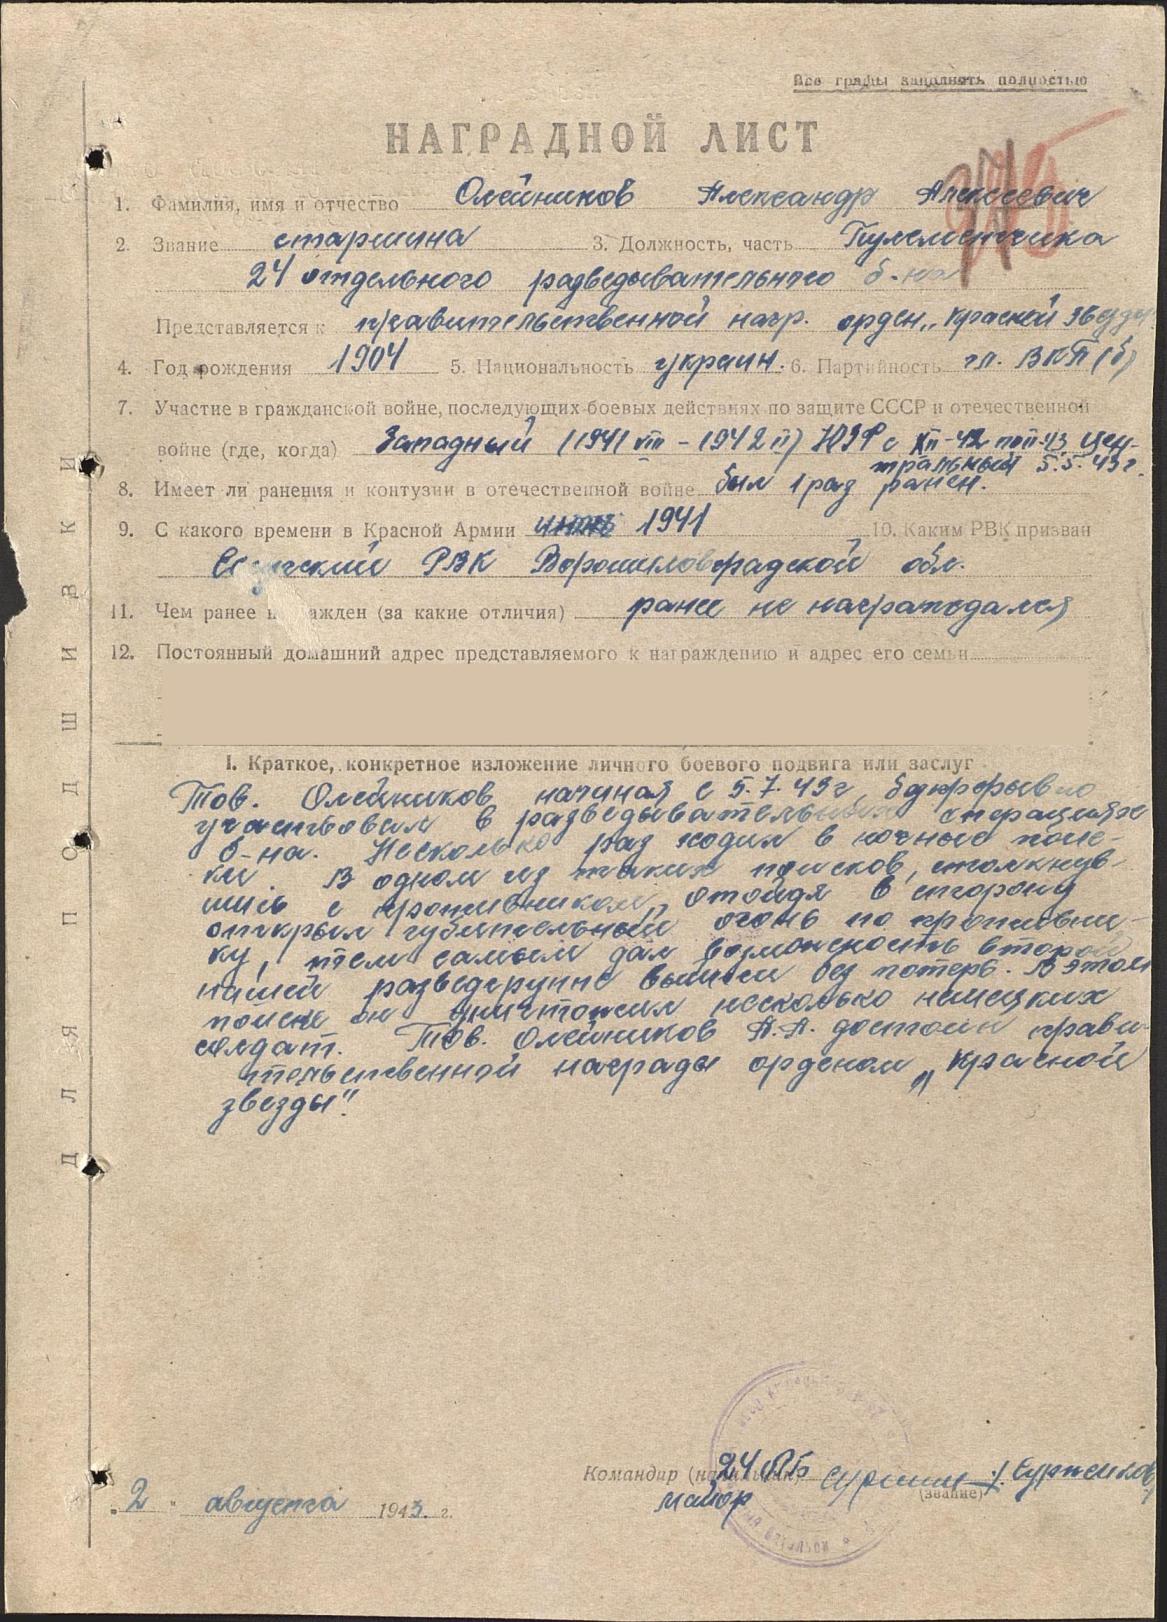 Все графы заполнять полностью
НАГРАДНОЙ ЛИСТ
1. Фамилия, имя и отчество Олейников Александр Алексеевич
2. Звание старшина 3. Должность, часть Пулеметчика
24 отдельного разведывательного б-на
Представляется к правительственной нагр. орден „Красной звезды
4. Год рождения 1904 5. Национальность украин. 6. Партийность чл. ВКП(б)
7. Участие в гражданской войне, последующих боевых действиях по защите СССР и отечественной
войне (где, когда) Западный (1941 VIII – 1942 II) ЮЗФ с XII-42 по II-43 Цен-
тральный 5.5.43 г.
8. Имеет ли ранения и контузии в отечественной войне был 1 раз ранен.
9. С какого времени в Красной Армии 1941 10. Каким РВК призван
РВК Ворошиловградской обл.
11. Чем ранее награжден (за какие отличия) ранее не награждался
12. Постоянный домашний адрес представляемого к награждению и адрес его семьи
I. Краткое, конкретное изложение личного боевого подвига или заслуг
Тов. Олейников начиная с 5.7.43 г.
участвовал в разведывательных операциях
б-на. Несколько раз ходил в ночные поис-
ки. В одном из таких поисков, столкнув-
шись с противником, отойдя в сторону
открыл губительный огонь по противни-
ку, тем самым дал возможность второй
нашей разведгруппе выйти без потерь. В этом
поиске он уничтожил несколько немецких
солдат. Тов. Олейников А.А. достоин прави-
тельственной награды орденом „Красной
звезды".
Командир (начальник) 24 ОРБ
майор
(звание)
„2" августа 1943. г.
ДЛЯ ПОДШИВКИ